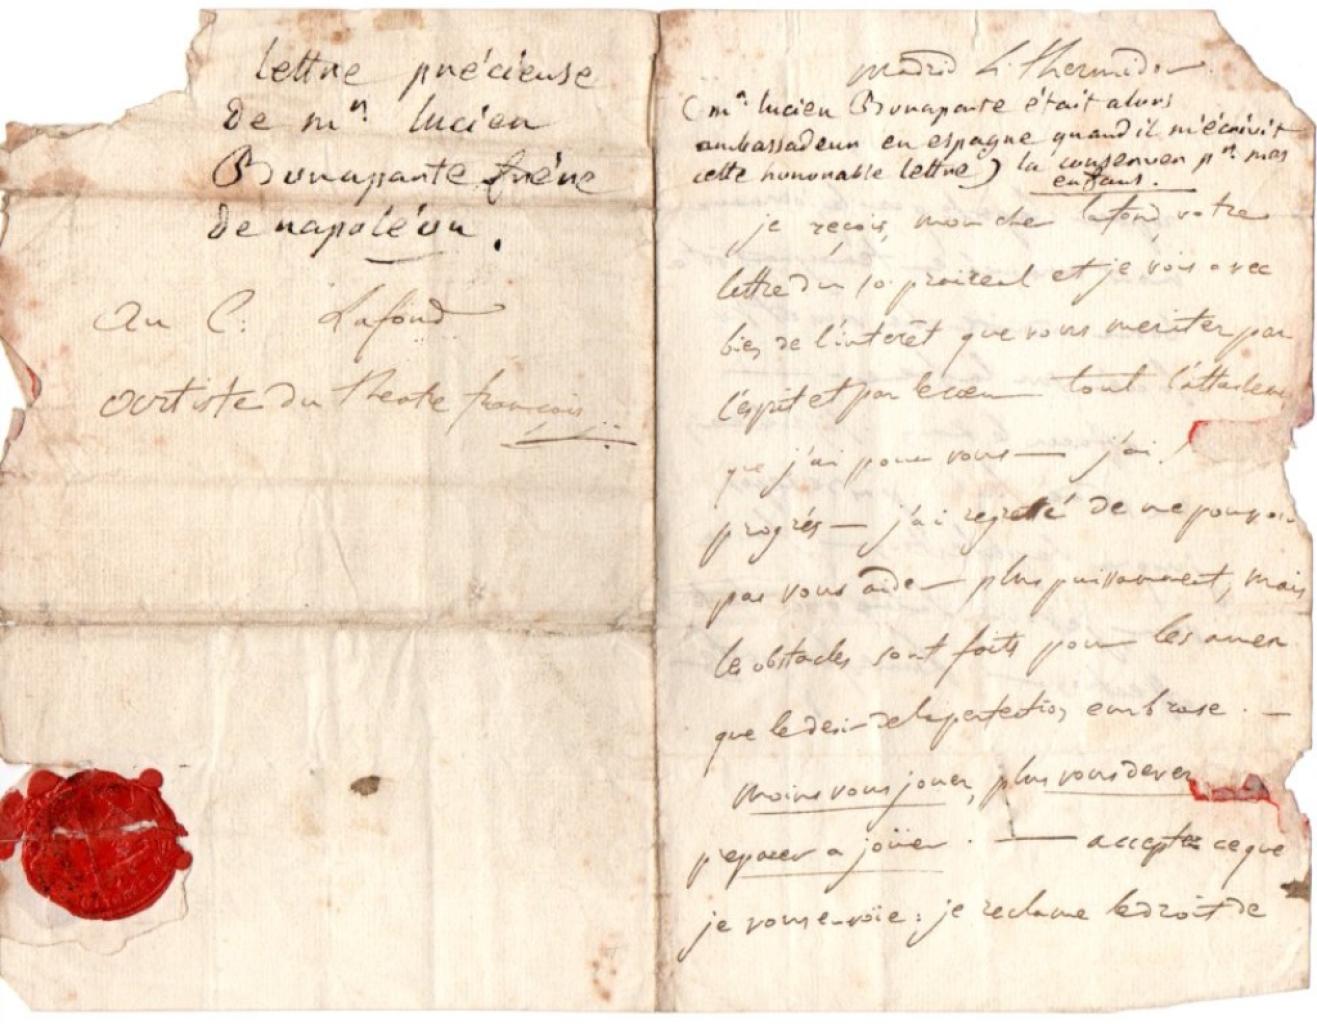 lettre précieuse
De mr. lucien
Bonaparte frère
de napoléon.
Au C: Lafond
artiste du theatre françois
madrid 4 thermidor
(mr. lucien Bonaparte était alors
ambassadeur en espagne quand il m'écrivit
cette honorable lettre) la conserver pr. mes
enfans.
je reçois, mon cher lafond votre
lettre du 10 prairial et je vois avec
bien de l'interêt que vous meritez par
l'esprit et par le cœur tout l'attachem
que j'ai pour vous — j'ai
progrés — j'ai regretté de ne pouvoir
pas vous aider plus puissamment, mais
les obstacles sont faits pour les ames
que le desir de la perfection embrase. —
moins vous jouez, plus vous devez
préparer a joüer. — acceptez ce que
je vous envoïe: je reclame le droit de